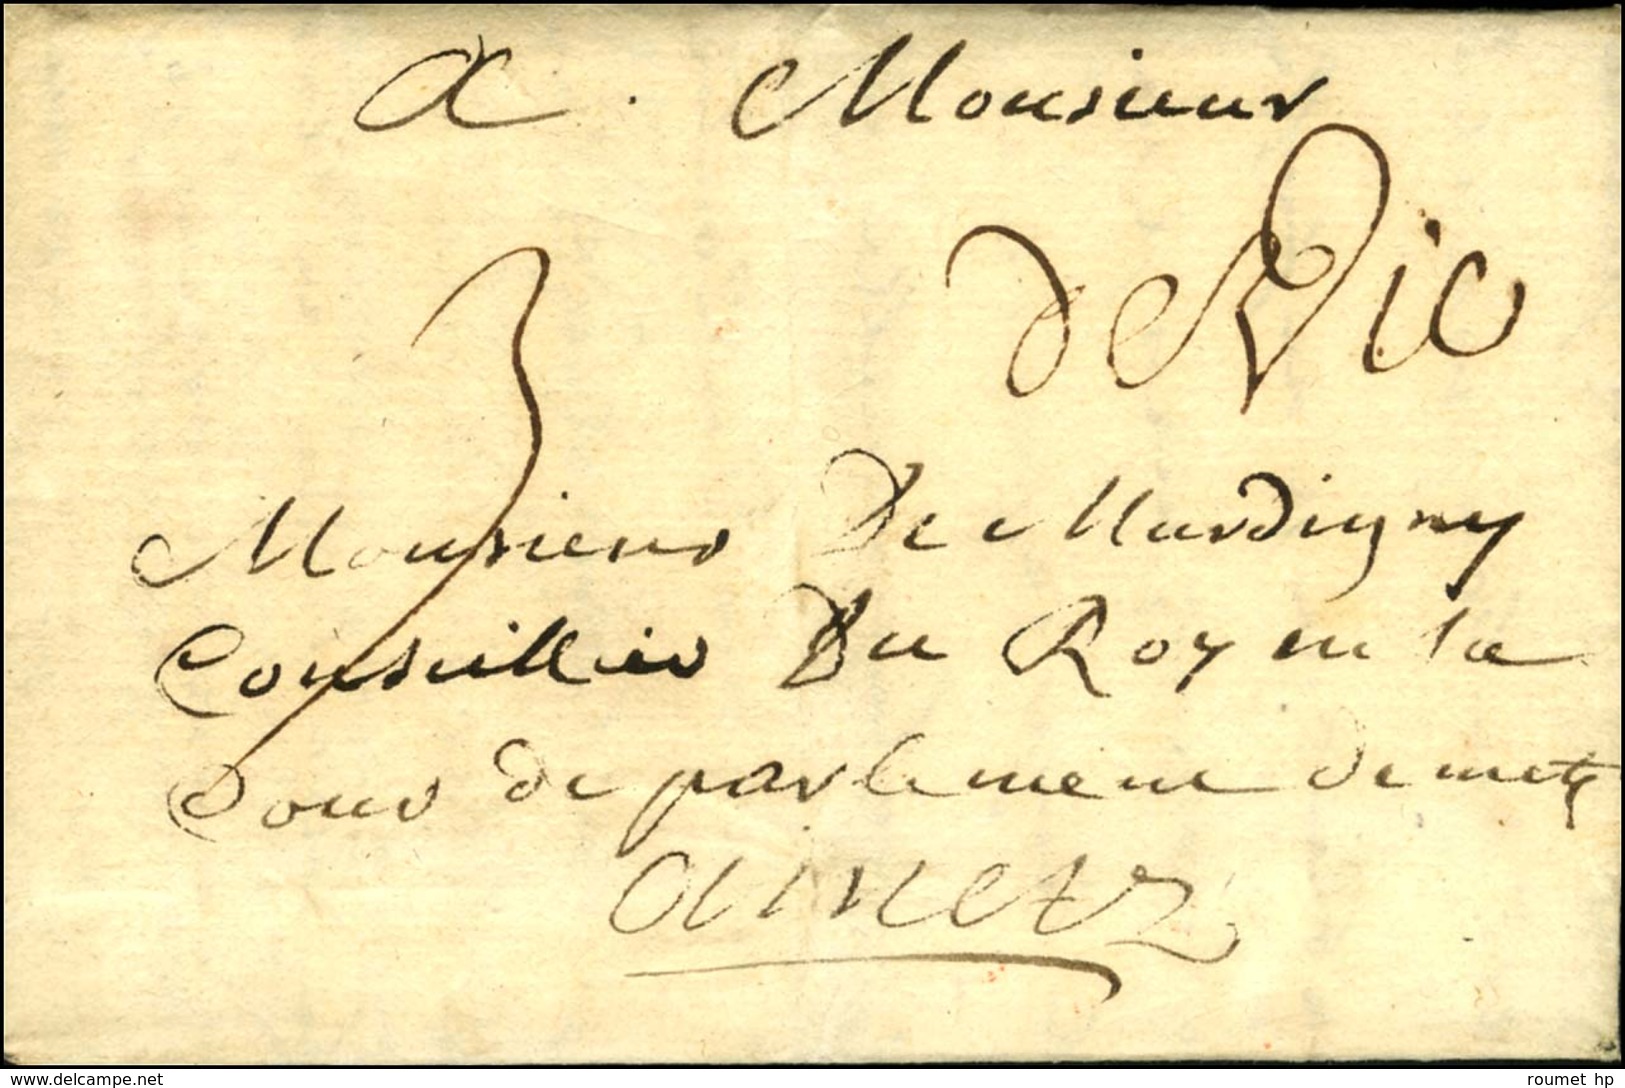 A Monsieur
de Vic
3
Monsieur De Mardigny
Conseillier Du Roy en la
Cour de parlement de metz
A metz
www.delcampe.net
roumet hp